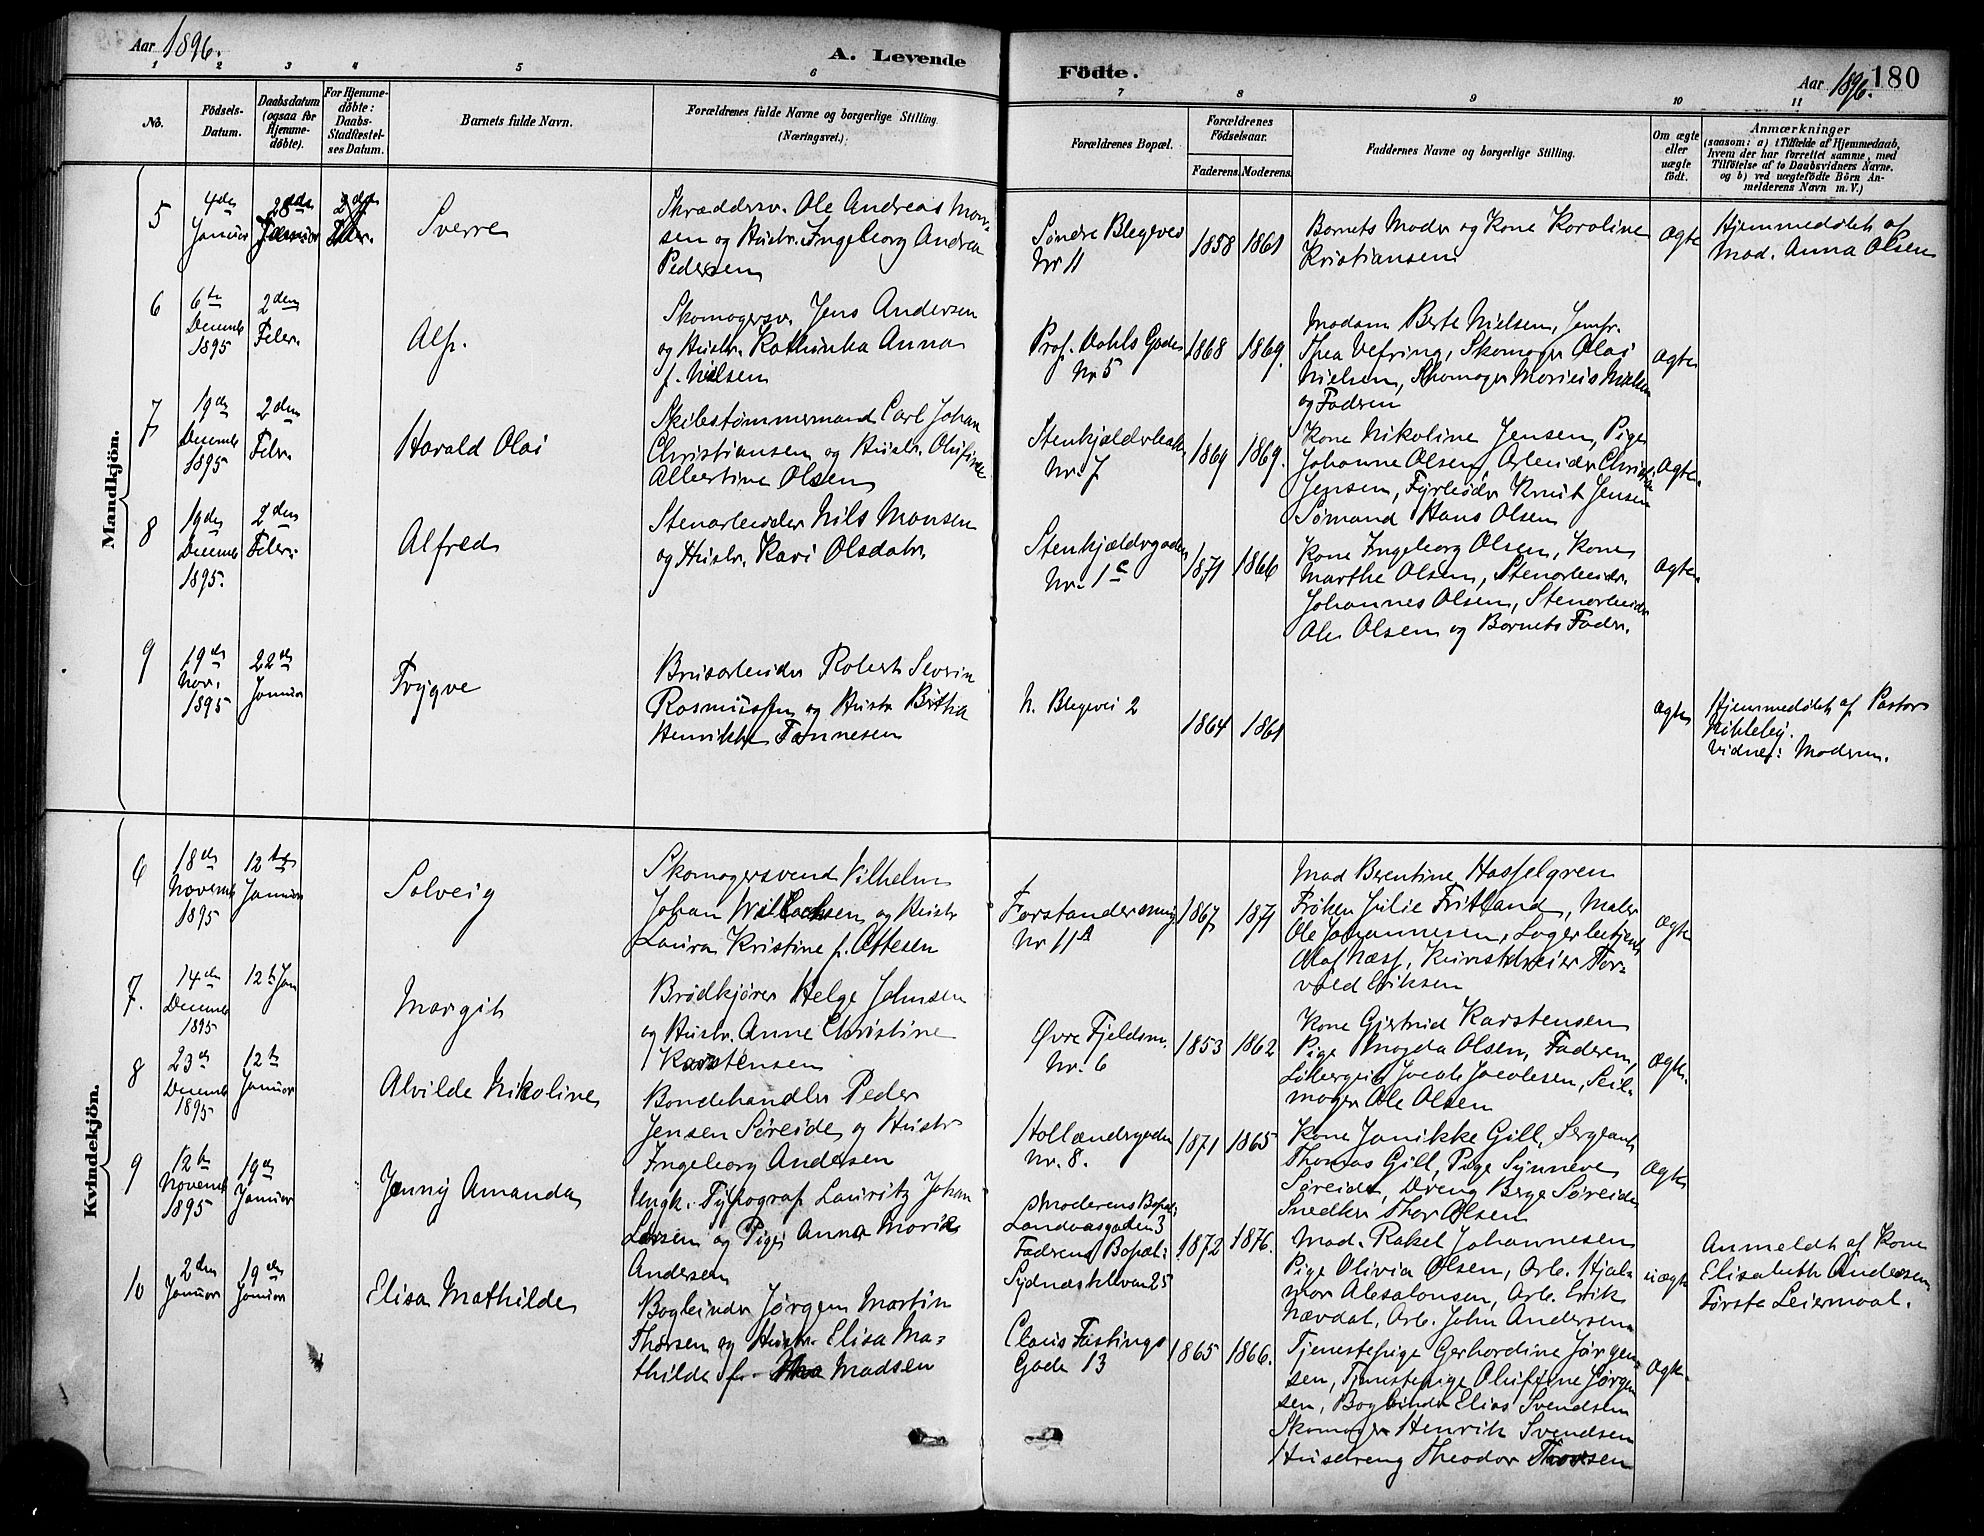 Aar 1896.
A. Levende
Födte.
Aar 1896. 180
1 2 3 4 5 6 7 8 9 10 11
No.
Födsels-
Datum.
Daabsdatum
(ogsaa for
Hjemme-
døbte).
For Hjemme-
døbte:
Daabs-
Stadfæstel-
ses Datum.
Barnets fulde Navn.
Forældrenes fulde Navne og borgerlige Stilling
(Næringsvei.)
Forældrenes Bopæl.
Forældrenes
Födselsaar.
Faderens. Moderens.
Faddernes Navne og borgerlige Stilling.
Om ægte
eller
uægte
født.
Anmærkninger
(saasom: a) i Tilfælde af Hjemmedaab,
hvem der har forrettet samme, med
Tilföielse af to Daabsvidners Navne.
og b) ved uægtefödte Börn An-
melderens Navn m. V.)
Mandkjön.
5
4de
Januar
28de
Januar
2den
Febr.
Sverre
Skræddersv. Ole Andreas Mon-
sen og Hustr. Ingeborg Andrea
Pedersen
Søndre Blegevei
Nr 11
1858 1861
Barnets Moder og Kone Karoline
Kristiansen
Ægte
Hjemmedøbt af
Mad. Anna Olsen
6
6te
Decemb
1895
2den
Febr.
Alf.
Skomagersv. Jens Andersen
og Hustr. Kathinka Anna
f. Nielsen
Prof. Dahls Gade
Nr 5
1868 1869.
Madam Berte Nielsen, Jomfr.
Thea Vefring, Skomager Olai
Nielsen, Skomager Marius Nielsen
og Faderen
ægte
7
19de
Decemb
1895
2den
Febr.
Harald Olai
Skibstømmermand Carl Johan
Christiansen og Hustr. Olufine
Albertine Olsen
Stenkjælderbakken
Nr. 7
1869 1869.
Kone Nikoline Jensen, Pige
Johanne Olsen, Arbeider Christian
Jensen, Fyrbøder Knut Jensen
Sømand Hans Olsen
Ægte.
8
19de
Decemb
1895.
2den
Febr.
Alfred
Stenarbeider Nils Monsen
og Hustr. Kari Olsdatr.
Stenkjeldergaden
Nr. 1c
1871 1866
Kone Ingeborg Olsen, Kone
Marthe Olsen, Stenarbeider.
Johannes Olsen, Stenarbeider
Ole Olsen og Barnets Fader.
Ægte.
9
19de
Nov.
1895
22de
Januar
Trygve
Brusarbeider Robert Severin
Rasmussen og Hustr Britha
Henrikke Tønnesen
N. Blegevei 2
1864 1861
ægte
Hjemmedøbt af Pastor
Kikleby.
Vidne: Moderen.
Kvindekjön.
6
18de
Novemb
1895
12te
Januar
Solveig
Skomagersvend Vilhelm
Johan og Hustr
Laura Kristine f. Ottesen
Forstandersmug
Nr 11A
1867 1871
Mad Berentine Hasselgren
Frøken Julie Fritland, Maler
Ole Johannesen, Lagerbetjent
Olaf Næss, Kunstdreier Tor-
vald Eriksen
Ægte
7.
14de
Decemb
1895
12te Jan
Margit
Brødkjører Helge Johnsen
og Hustr. Anne Christine
Karstensen
Øvre Fjeldsm.
Nr. 6
1853 1862
Kone Gjertrud Karstensen
Pige Magda Olsen, Faderen,
Jacob Jacobsen, Seil-
mager Ole Olsen
Ægte.
8
23de
Decemb
1895
12te
Januar
Alvilde Nikoline
Bondehandler Peder
Jensen Søreide og Hustr
Ingeborg Andersen
Hollændergaden
Nr. 8.
1871 1865
Kone Janikke Gill, Sergeant
Thomas Gill, Pige Synneve
Søreide, Dreng Berge Søreide
Snedker Thor Olsen
Ægte
9
12te
Novemb
1895
19de
Januar
Jenny Amanda
Ungk. Typograf Lauritz Johan
Larsen og Pige Anna Marie
Andersen
Moderens Bopæl:
Landaasgaden 3
Fadrens Bopæl:
Sydnæskleven 25
1872 1876.
Mad. Rakel Johannesen
Pige Olivia Olsen, Arb. Hjal-
mar Absalonsen, Arb. Erik
Nævdal, Arb. John Andersen
uægte
Anmeldt af Kone
Elisabeth Andersen
Første Leiermaal.
10
2den
Januar
19de
Januar
Elisa Mathilde
Bogbinder Jørgen Martin
Thorsen og Hustr. Elisa Ma-
thilde f. Madsen
Claus Fastings
Gade 13
1865 1866.
Tjenestepige Gerhardine Jørgen-
sen, Tjenestepige Olufine Jørgen-
sen, Bogbinder Elias Svendsen
Skomager Henrik Svendsen
Husdreng Theodor Thorsen
Ægte.